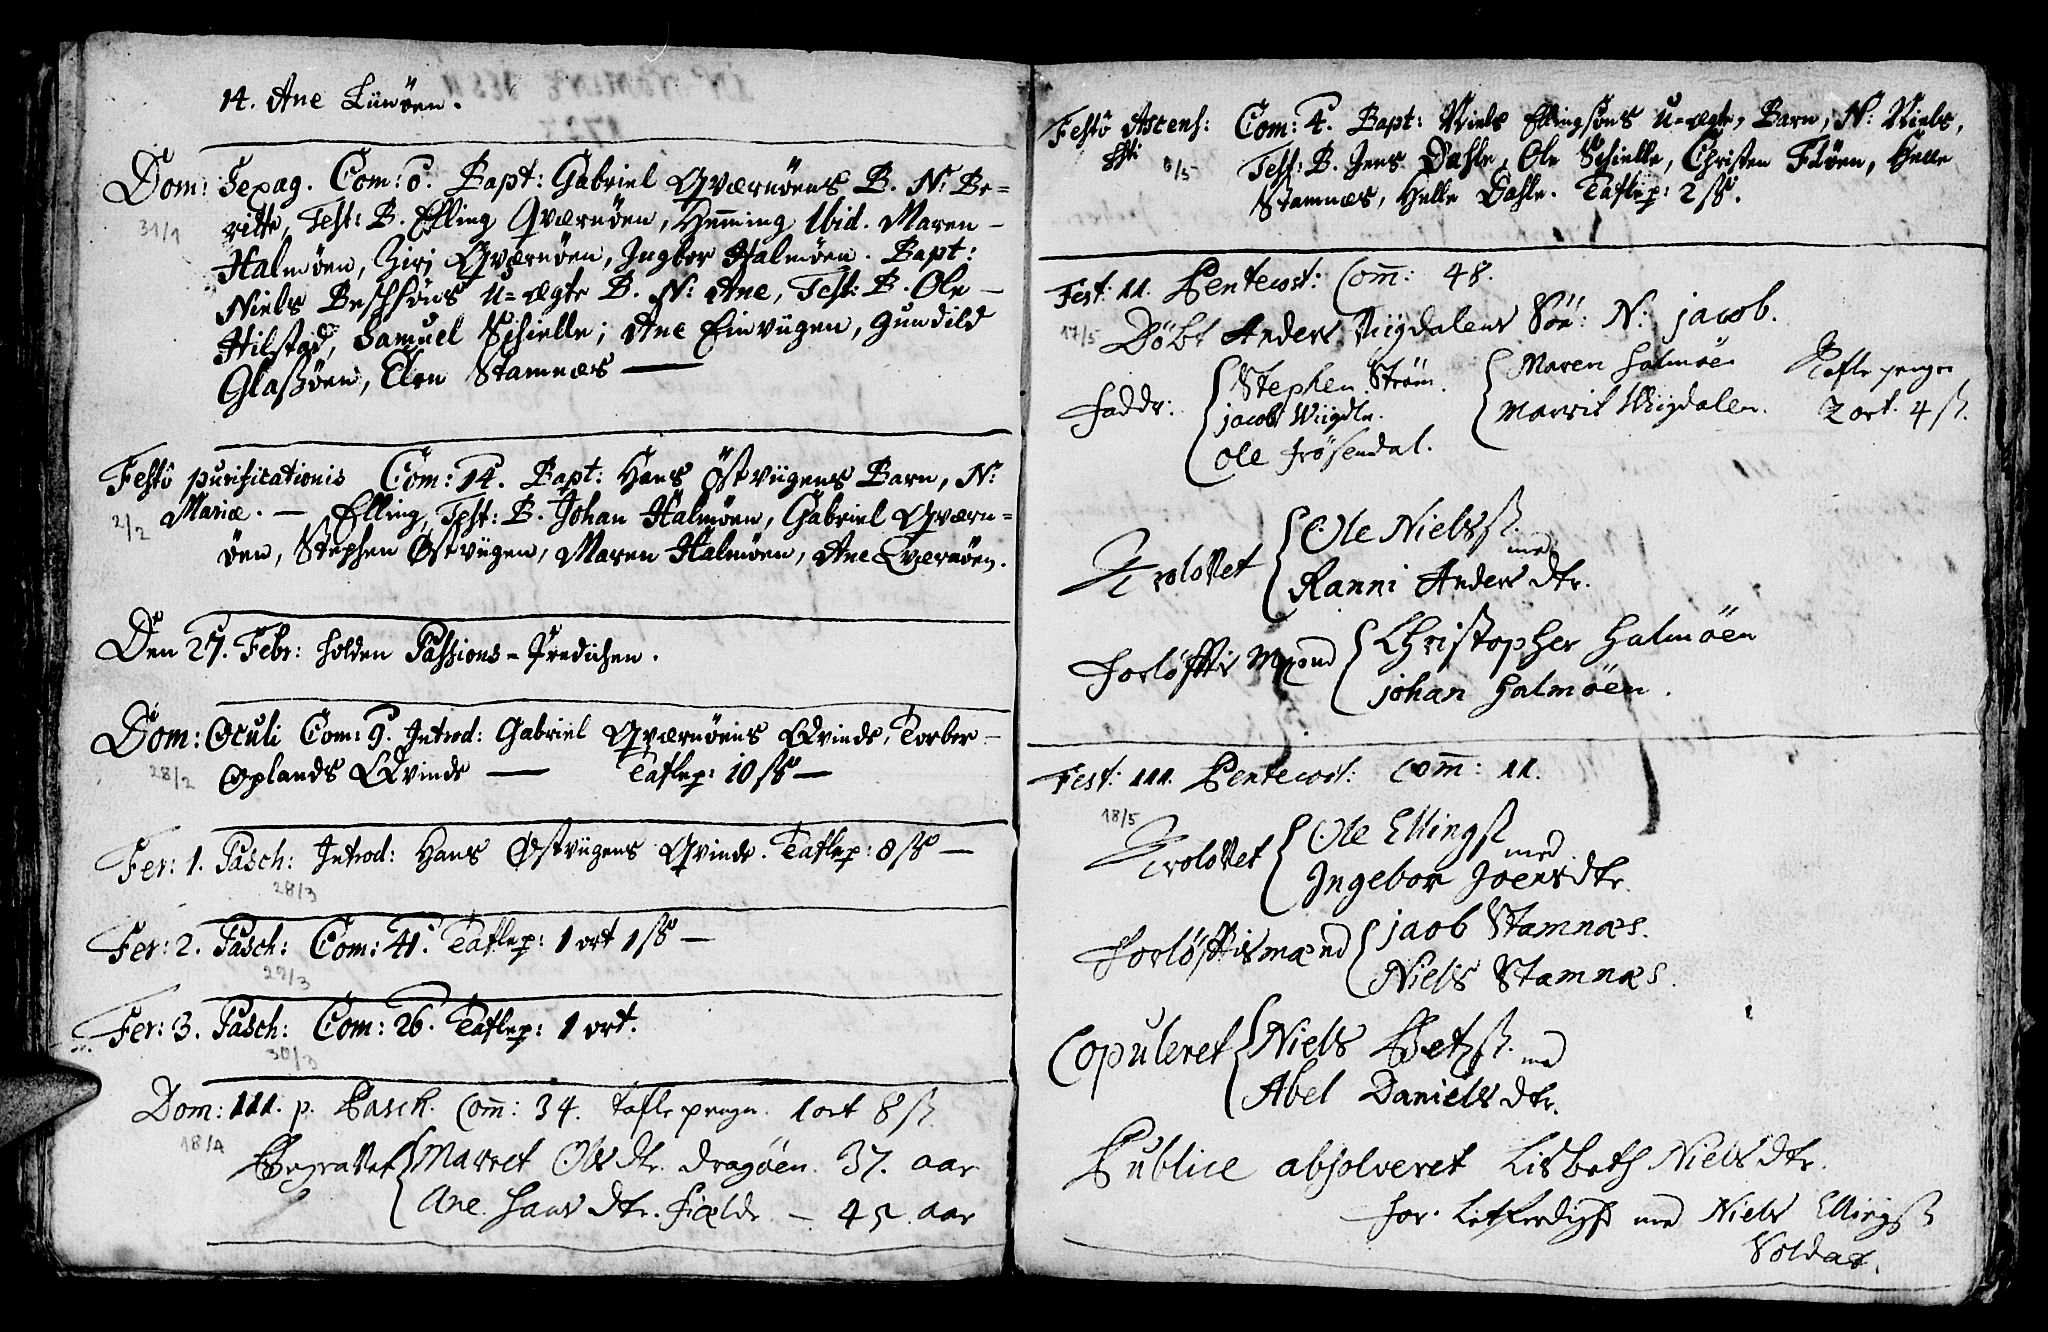 14. Ane Lünöen.
Dom: Sexag. Com: 6. Bapt: Gabriel Qværnöens B. N: Be=
31/1
ritte, Test: B. Elling Qværnöen, Hem̄ing Ibid. Maren
Halmöen, Giri Qværnöen, Ingbor Halmöen. Bapt:
Niels u=ægte B. N: Ane, Test: B. Ole
Hilstad, Samuel Schielle; Ane Einviigen, Gundild
Glaßöen, Elen Stamnæs —
Festo purificationis Com: 14. Bapt: Hans Östviigens Barn, N:
Mariæ. — Elling, Test: B. Johan Halmöen, Gabriel Qværn=
2/2
öen, Stephen Østviigen, Maren Halmöen, Ane Qværnöen.
Den 27. Febr: holden Passions-Predichen.
Dom: Oculi Com: 9. Introd: Gabriel Qværnöens Qvinde, Torber
28/2
Oplands Qvinde — Taflep: 10 ß —
Fer: 1. Pasch: Introd: Hans Østviigens Qvinde. Taflep: 8 ß —
28/3
Fer: 2. Pasch: Com: 41. Taflep: 1 ort 1 ß —
29/3
Fer: 3. Pasch: Com: 26. Taflep: 1 ort.
30/3
Dom: III. p. Pasch. Com̄: 34. Tafle penge. 1 ort 8 ß.
18/4
Begravet { Marret Ols dtr. Dragöen. 37. aar
Ane Hans dtr. Fielde — 45 aar
Festo Ascens: Com: 4. Bapt: Niels Ellingsöns u=ægte, Barn, N: Niels,
6/5
Test: B. Jens Dahle, Ole Schielle, Christen Flöen, Helle
Stamnæs, Helle Dahle. Taflep: 2 ß.
Fest: II. Pentecost: Com̄: 48.
17/5
Döbt Anders Viigdalens Sön: N: jacob.
Faddr: { Stephen Ström.
jacob Viigdln.
Ole Frösendal.
{ Maren Halmöen
Marrit Viigdalen.
Tafle penge
2 ort. 4 ß.
Trolovet { Ole Nielsß. med
Ranni Anders dtr.
Forlöftis Mænd { Christopher Halmöen
johan Halmöen.
Fest: III. Pentecost: Com̄: 11.
18/5
Trolovet { Ole Ellingsß med
Ingebor Joens dtr.
Forlöftismænd { jacob Stamnæs.
Niels Stamnæs.
Copuleret { Niels Petsß. med
Abel Daniels dtr.
Publice absolveret Lisbeth Niels dtr.
for. Letferdighd med Niels Ellingsß
Soldat.